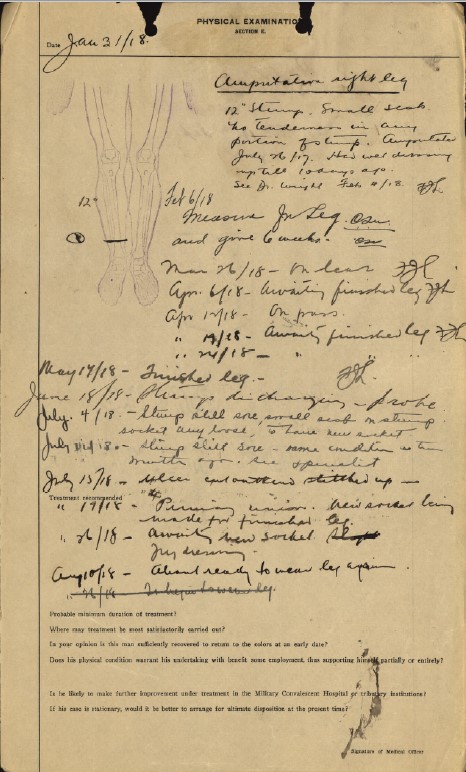 PHYSICAL EXAMINATION
SECTION E.
Date Jan 31/18.
Amputation right leg
12" Stump. Small scab.
No tenderness in any
portion of stump. Amputated
July 26/17. Had wet dressing
up till 10 days ago.
See Dr. Wright Feb 4/18.
12"
Feb 6/18
Measure for Leg.
and give 6 weeks.
Mar 26/18 - On leave
Apr. 6/18 - Awaiting finished leg
Apr 12/18 - On pass.
" 19/18 - Await finished leg
" 24/18 - "
May 14/18 - Finished leg. -
June 18/18 - Stump discharging - probe
July. 4/18. - Stump still sore, small scab on stump.
socket very loose, to have new socket
July /18 - Stump still sore - same condition as
month ago. See specialist
July 15/18 - Ulcer stitched up -
Treatment recommended
" 19/18 - union. New socket being
made for finished leg.
" 26/18 - Await new socket.
Dry dressing.
Aug 10/18 - About ready to wear leg again.
" /18 - To begin to wear leg.
Probable minimum duration of treatment?
Where may treatment be most satisfactorily carried out?
In your opinion is this man sufficiently recovered to return to the colors at an early date?
Does his physical condition warrant his undertaking with benefit some employment, thus supporting himself partially or entirely?
Is he likely to make further improvement under treatment in the Military Convalescent Hospital or tributary institutions?
If his case is stationary, would it be better to arrange for ultimate disposition at the present time?
Signature of Medical Officer